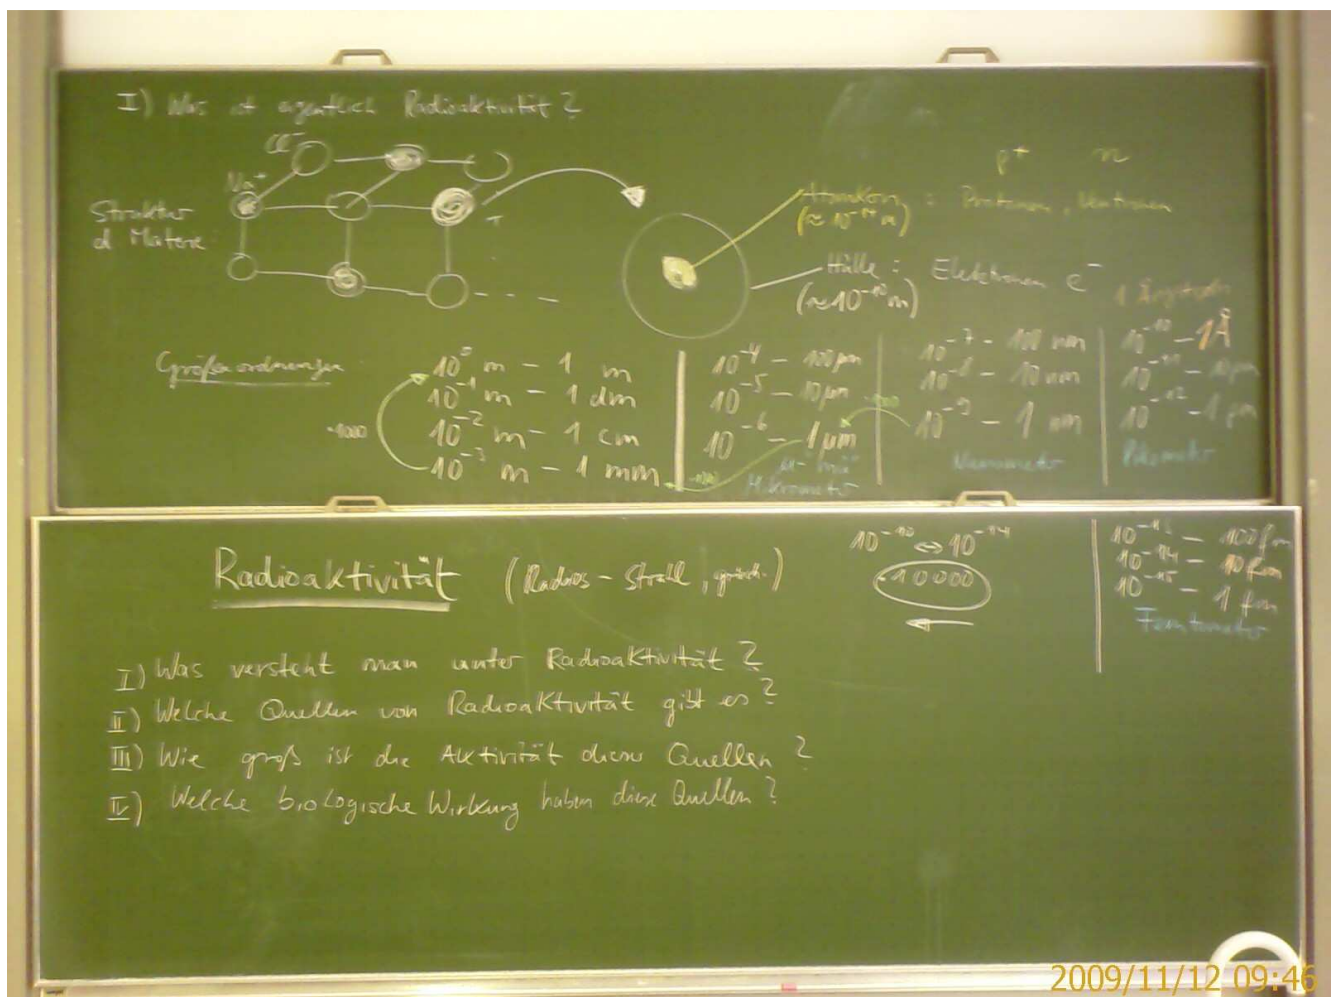 I) Was ist eigentlich Radioaktivität?
Cl⁻
Na⁺
Struktur
d Materie
p⁺ n
Atomkern : Protonen, Neutronen
(≈ 10⁻¹⁴ m)
Hülle : Elektronen e⁻
(≈ 10⁻¹⁰ m)
Größenordnungen
10⁰ m - 1 m
10⁻¹ m - 1 dm
10⁻² m - 1 cm
10⁻³ m - 1 mm
·1000
10⁻⁴ - 100 µm
10⁻⁵ - 10 µm
10⁻⁶ - 1 µm
µ - "mü"
Mikrometer
·1000
10⁻⁷ - 100 nm
10⁻⁸ - 10 nm
10⁻⁹ - 1 nm
Nanometer
·1000
1 Angström
10⁻¹⁰ - 1 Å
10⁻¹¹ - 10 pm
10⁻¹² - 1 pm
Pikometer
Radioaktivität (Radios - Strahl, griech.)
10⁻¹⁰ ⇔ 10⁻¹⁴
·10000
10⁻¹³ - 100 fm
10⁻¹⁴ - 10 fm
10⁻¹⁵ - 1 fm
Femtometer
I) Was versteht man unter Radioaktivität?
II) Welche Quellen von Radioaktivität gibt es?
III) Wie groß ist die Aktivität dieser Quellen?
IV) Welche biologische Wirkung haben diese Quellen?
2009/11/12 09:46